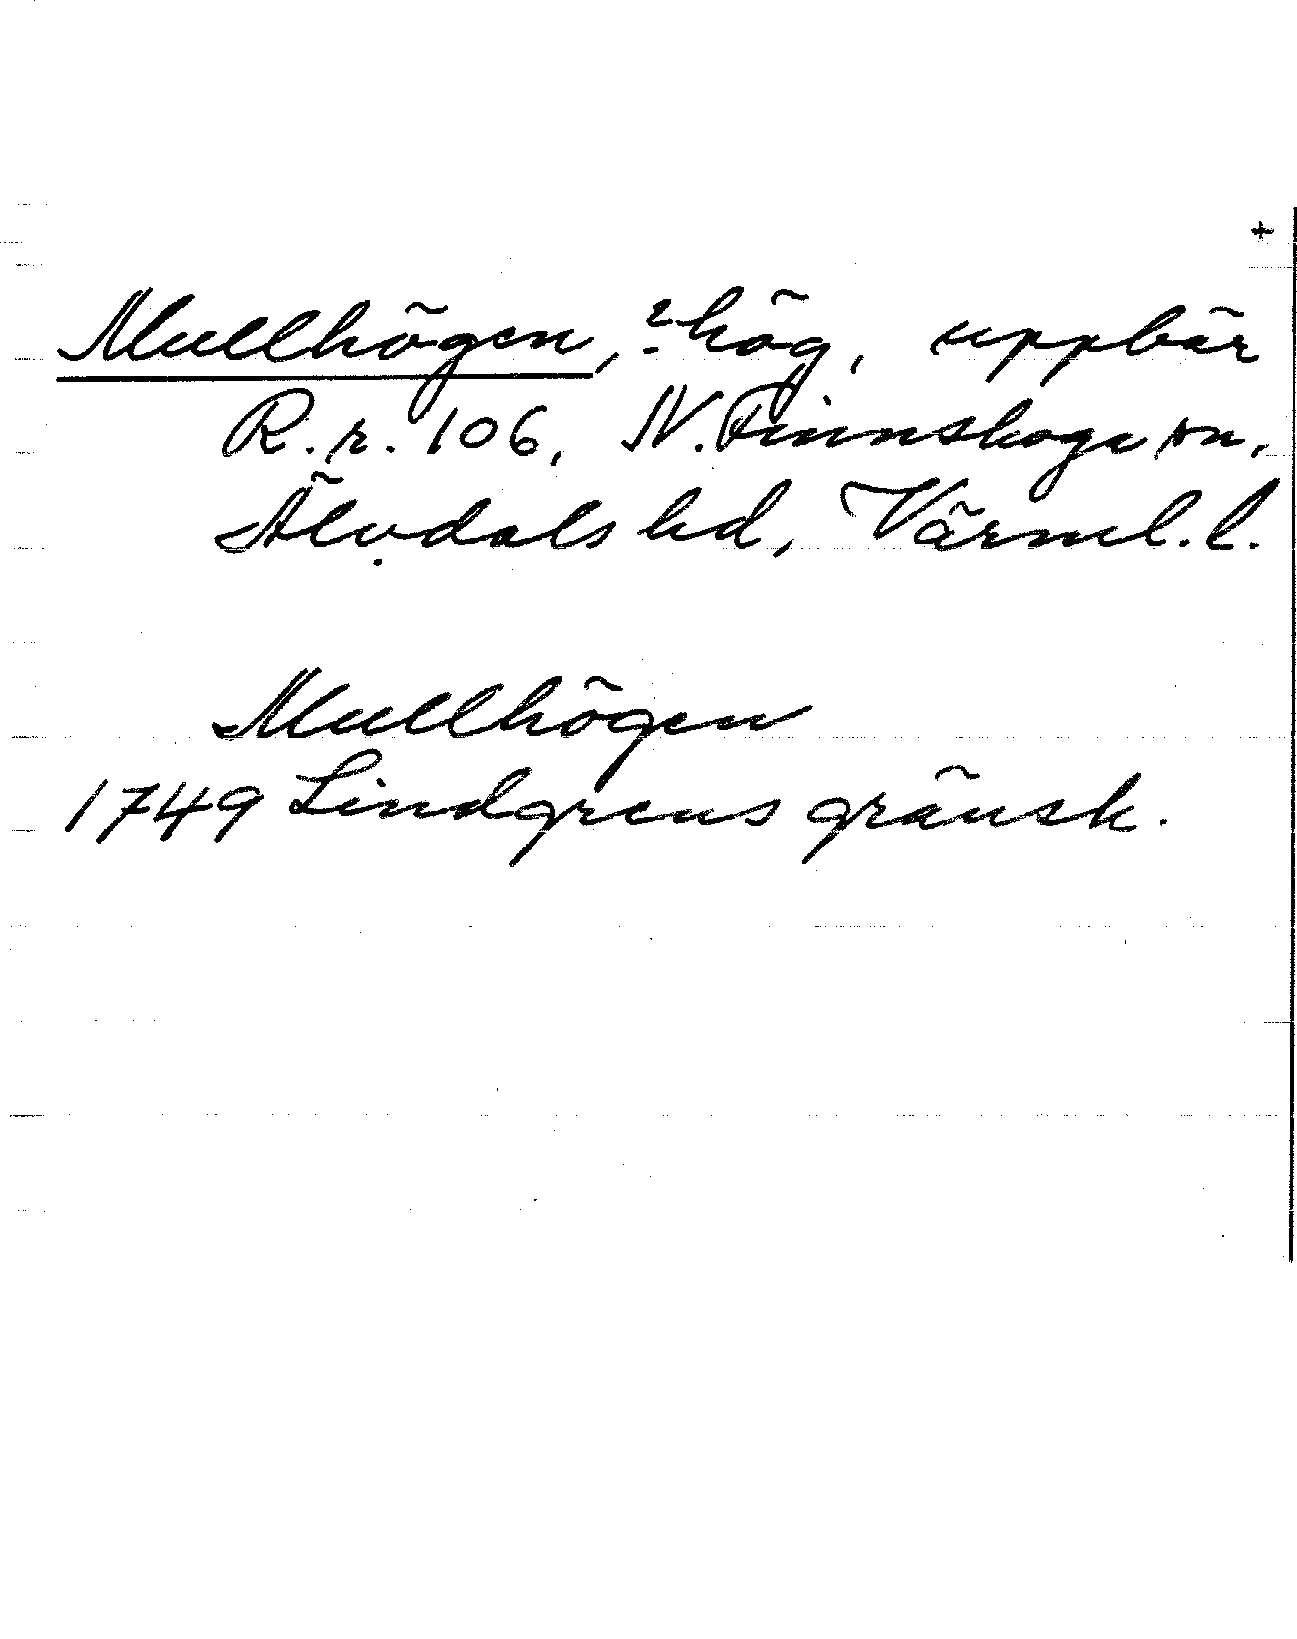 +
Mullhögen, ? hög, uppbär
R.r. 106, N. Finnskoga sn,
Älvdals hd, Värml. l.
Mullhögen
1749 Lindgrens gränsk.